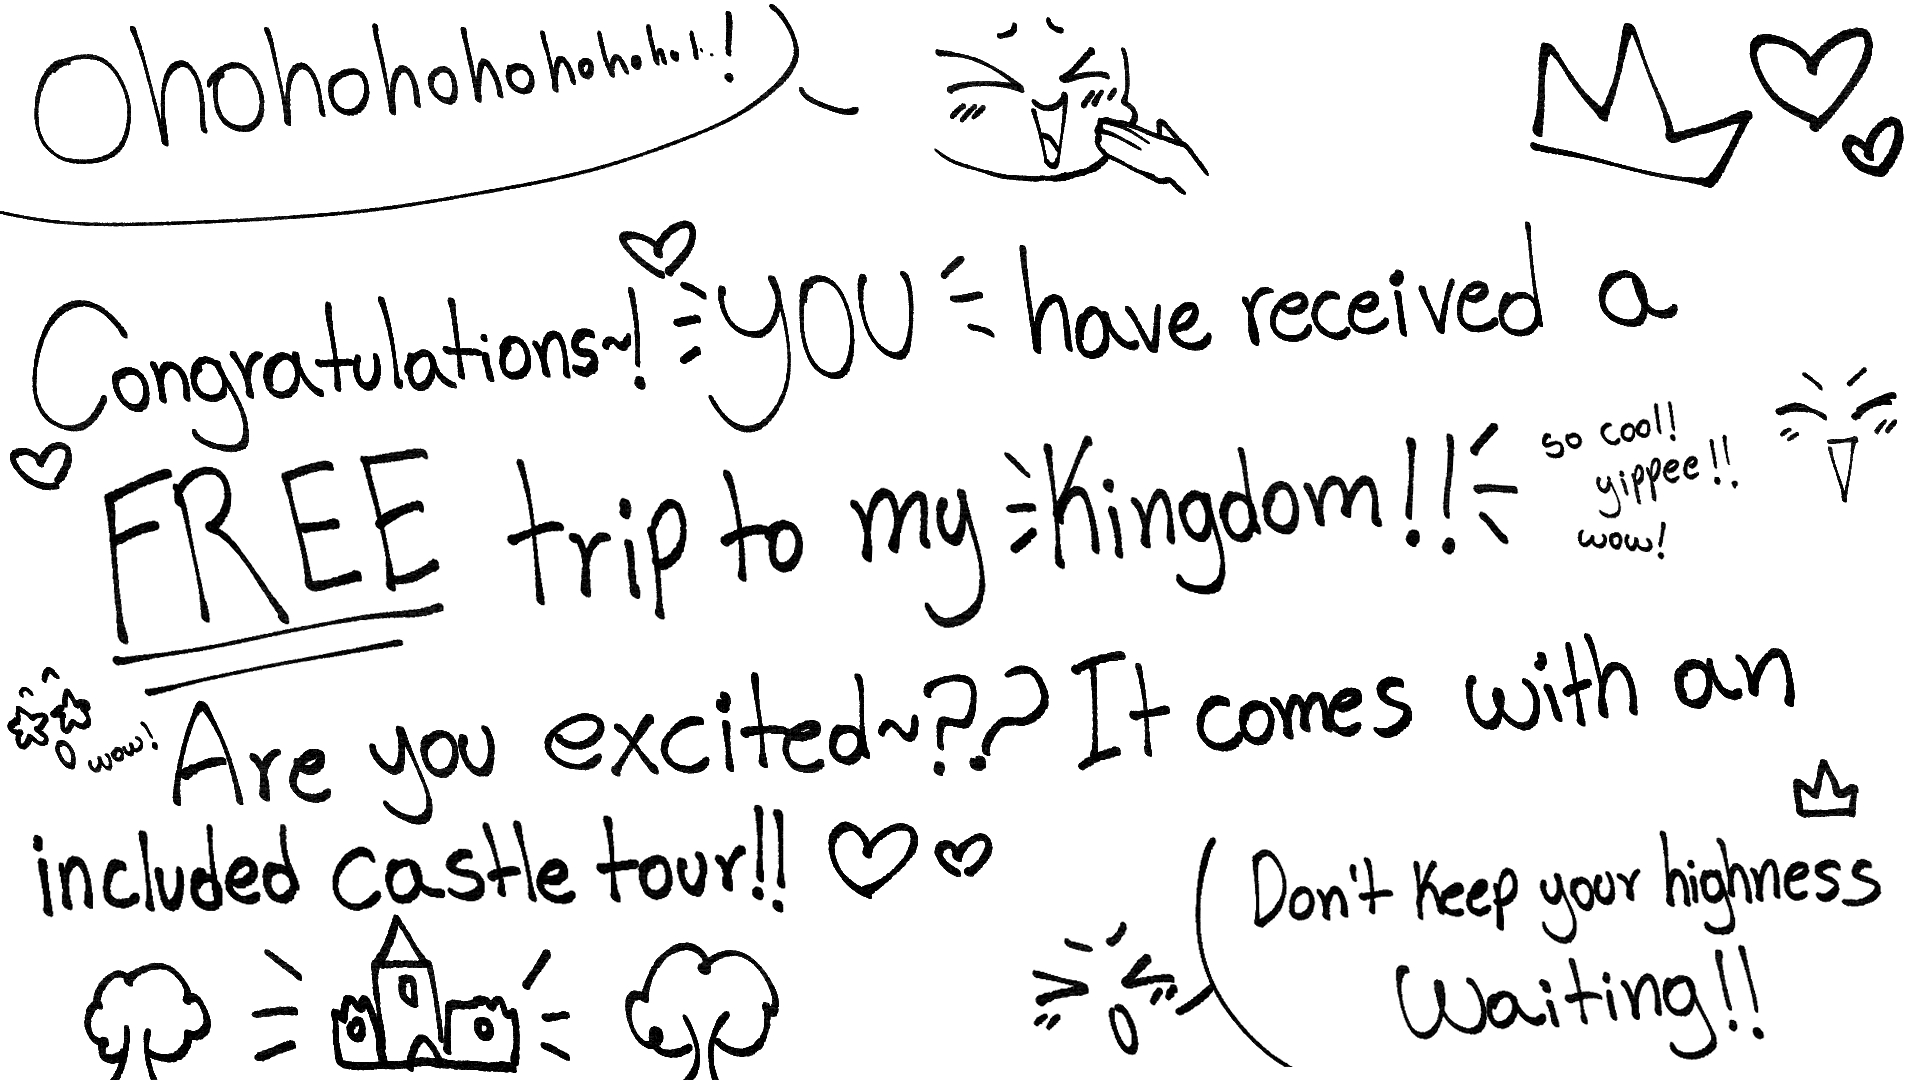 Ohohohohohohohoho...!
Congratulations~! YOU have received a
FREE trip to my Kingdom!!
so cool!
yippee!!
wow!
wow!
Are you excited~?? It comes with an
included castle tour!!
Don't keep your highness
Waiting!!